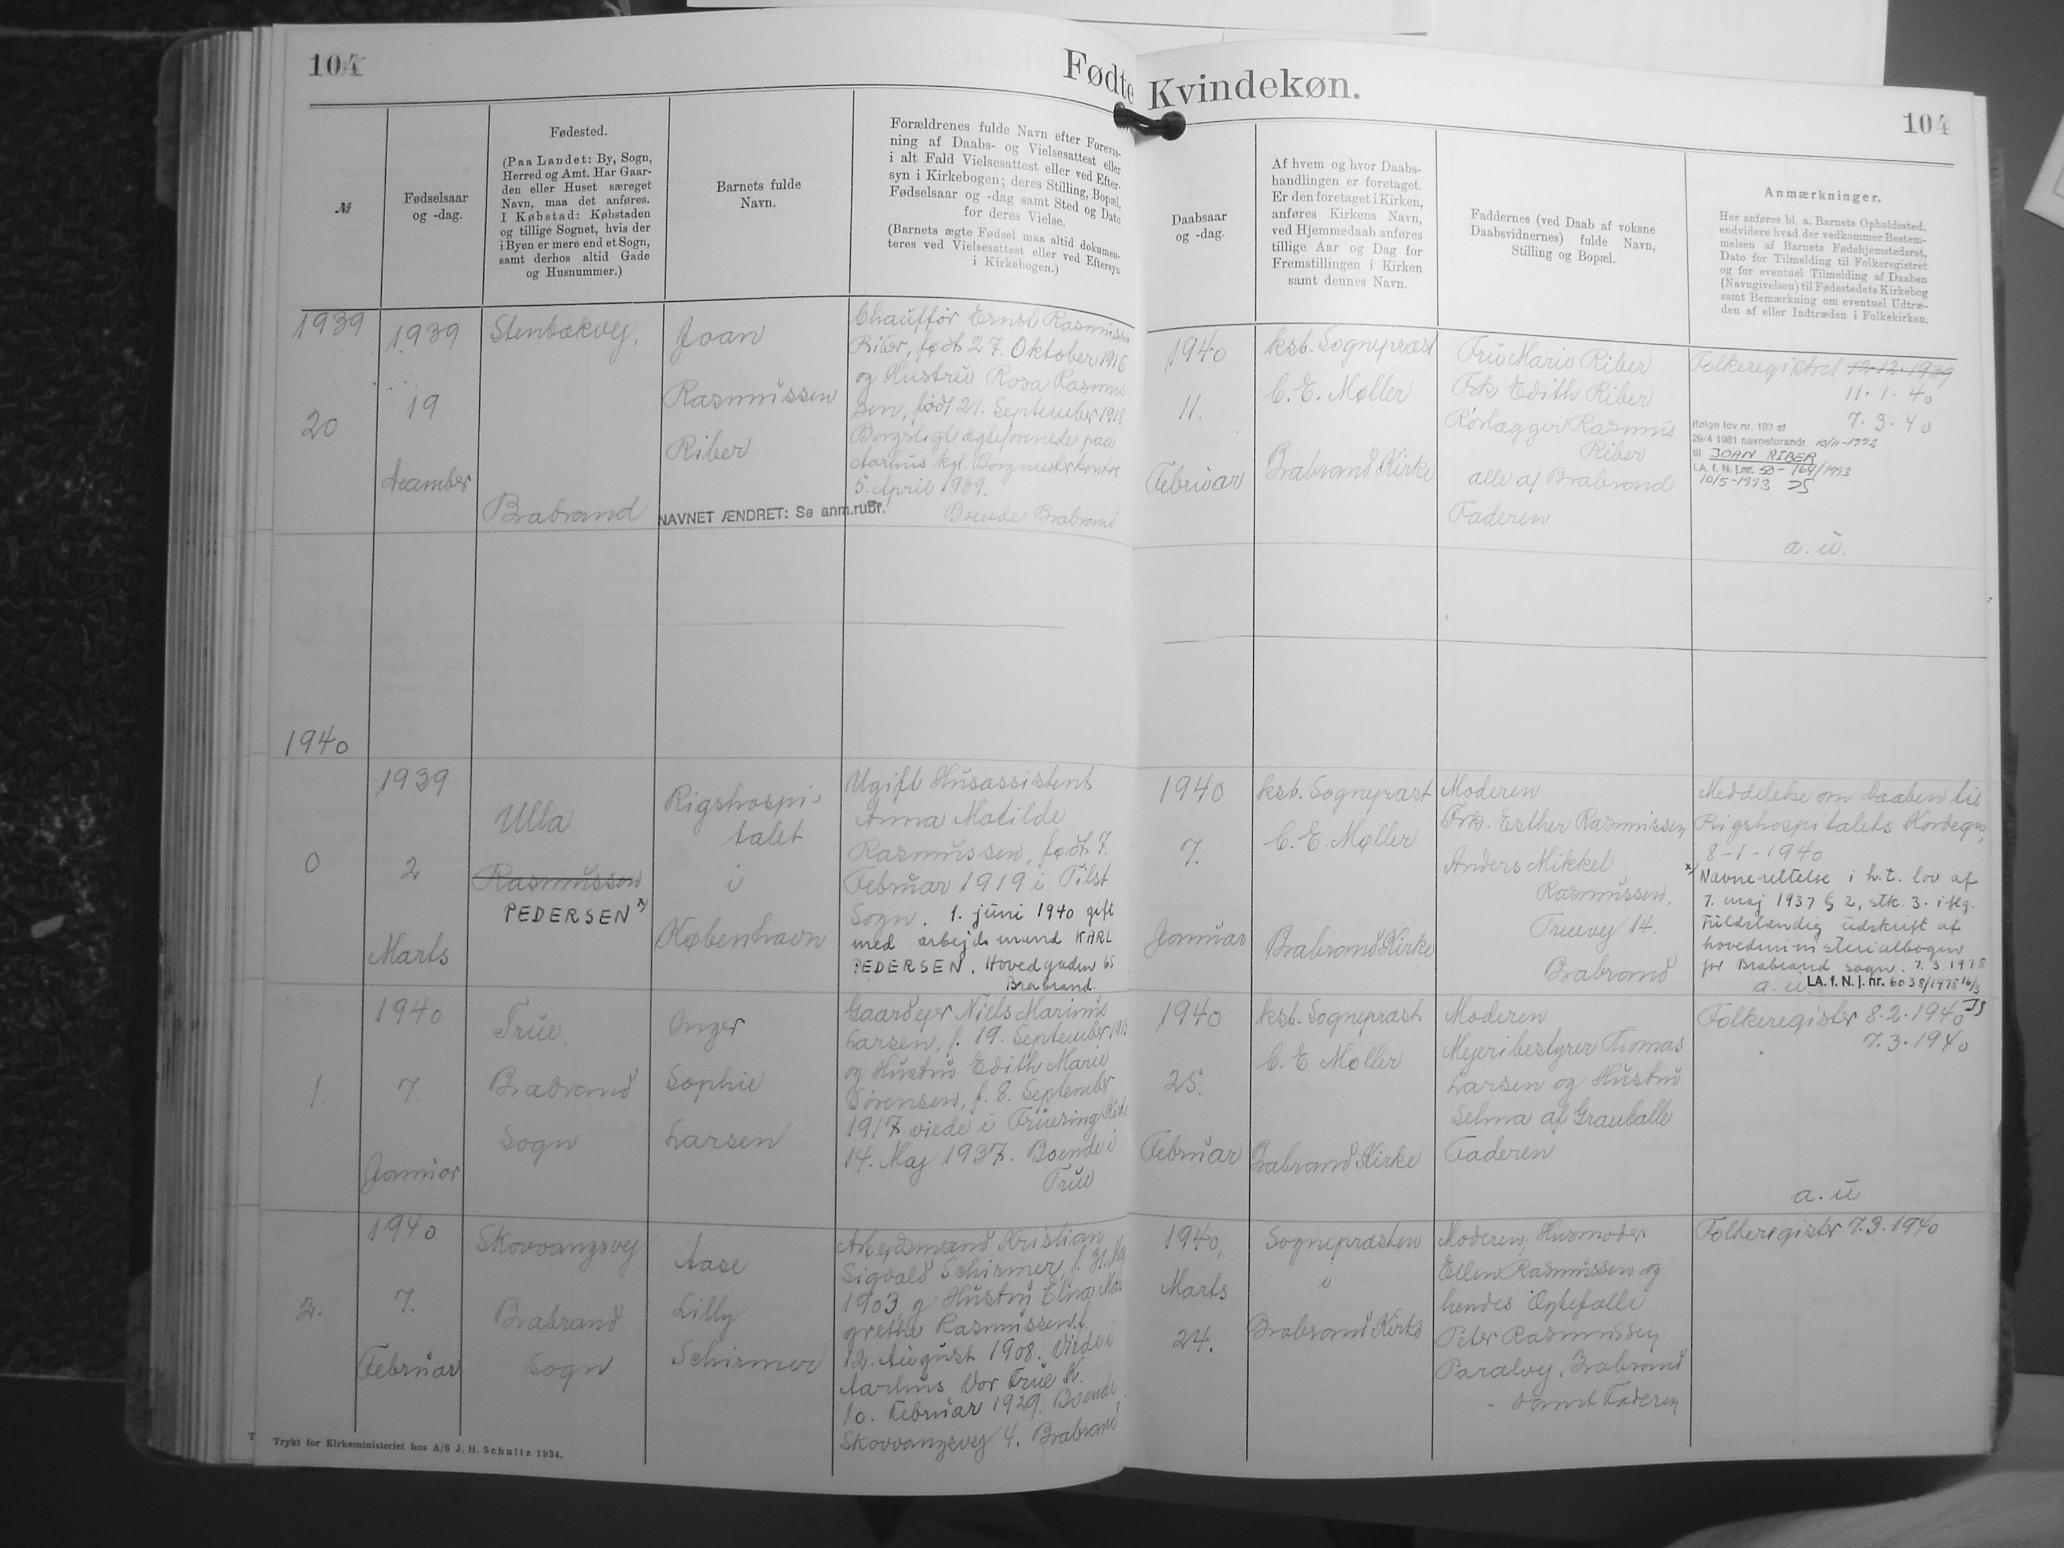 104
Fødte Kvindekøn.
104
№
Fødselsaar
og -dag.
Fødested.
(Paa Landet: By, Sogn,
Herred og Amt. Har Gaar-
den eller Huset særeget
Navn, maa det anføres.
I Købstad: Købstaden
og tillige Sognet, hvis der
i Byen er mere end et Sogn,
samt derhos altid Gade
og Husnummer.)
Barnets fulde
Navn.
Forældrenes fulde Navn efter Forevis-
ning af Daabs- og Vielsesattest eller
i alt Fald Vielsesattest eller ved Efter-
syn i Kirkebogen; deres Stilling, Bopæl,
Fødselsaar og -dag samt Sted og Dato
for deres Vielse.
(Barnets ægte Fødsel maa altid dokumen-
teres ved Vielsesattest eller ved Eftersyn
i Kirkebogen.)
Daabsaar
og -dag.
Af hvem og hvor Daabs-
handlingen er foretaget.
Er den foretaget i Kirken,
anføres Kirkens Navn,
ved Hjemmedaab anføres
tillige Aar og Dag for
Fremstillingen i Kirken
samt dennes Navn.
Faddernes (ved Daab af voksne
Daabsvidnernes) fulde Navn,
Stilling og Bopæl.
Anmærkninger.
Her anføres bl. a. Barnets Opholdssted,
endvidere hvad der vedkommer Bestem-
melsen af Barnets Fødehjemstedsret,
Dato for Tilmelding til Folkeregistret
og for eventuel Tilmelding af Daaben
(Navngivelsen) til Fødestedets Kirkebog
samt Bemærkning om eventuel Udtræ-
den af eller Indtræden i Folkekirken.
1939
20
1939
19
December
Stenbækvej,
Brabrand
Joan
Rasmussen
Riber
NAVNET ÆNDRET: Se anm.rubr.
Chauffør Ernst Rasmussen
Riber, født 27. Oktober 1916
og Hustru Rosa Rasmus
sen, født 21. September 1918
Borgerligt ægteforenede paa
Aarhus kgl. Borgmesterkontor
5. April 1939.
Boende Brabrand
1940
11.
Februar
kst. Sognepræst
C. E. Møller
Brabrand Kirke
Fru Marie Riber
Frk Edith Riber
Rørlægger Rasmus
Riber
alle af Brabrand
Faderen
Folkeregistret 12.12.1939
11.1.40
7.3.40
Ifølge lov nr. 193 af
29/4 1981 navneforandr. 10/11-1992
til JOAN RIBER
LA. f. N. j.nr. 50-164/1993
10/5-1993 JS
a. u.
1940
0
1939
2
Marts
Ulla
Rasmussen
PEDERSEN x)
Rigshospi-
talet
i
København
Ugift Husassistent
Anna Matilde
Rasmussen, født 7.
Februar 1919 i Tilst
Sogn. 1. juni 1940 gift
med arbejdsmand KARL
PEDERSEN. Hovedgaden 65
Brabrand.
1940
7.
Januar
kst. Sognepræst
C. E. Møller
Brabrand Kirke
Moderen
Frk. Esther Rasmussen
Anders Mikkel
Rasmussen,
Truevej 14.
Brabrand
Meddelelse om Daaben til
Rigshospitalets Kordegn,
8-1-1940
x) Navnerettelse i h.t. lov af
7. maj 1937 § 2, stk. 3. iflg.
Fuldstændig udskrift af
hovedministerialbogen
for Brabrand sogn. 7.3.1978
a. u. LA. f. N. j. nr. 6038/1978 16/3
JS
1.
1940
7.
Januar
True,
Brabrand
Sogn
Inger
Sophie
Larsen
Gaardejer Niels Marinus
Larsen, f. 19. September
og Hustru Edith Marie
Sørensen, f. 8. September
1917. viede i Fruering Kirke
14. Maj 1937. Boende i
True
1940
25.
Februar
kst. Sognepræst
C. E Møller
Brabrand Kirke
Moderen
Mejeribestyrer Thomas
Larsen og Hustru
Selma af Grauballe
Faderen
Folkeregister 8.2.1940
7.3.1940
a. u
2.
1940
7.
Februar
Skovvangsvej
Brabrand
Sogn
Aase
Lilly
Schirmer
Arbejdsmand Kristian
Sigvald Schirmer, f. 31. Maj
1903 og Hustru Elna Mar
grethe Rasmussen f.
12. August 1908. Viede i
Aarhus Vor Frue K.
10. Februar 1929. Boende
Skovvangsvej 4. Brabrand
1940,
Marts
24.
Sognepræsten
i
Brabrand Kirke
Moderen, Husmoder
Ellen Rasmussen og
hendes Ægtefælle
Peter Rasmussen
Paralvej, Brabrand
samt Faderen
Folkeregister 7.3.1940
Trykt for Kirkeministeriet hos A/S J. H. Schultz 1934.